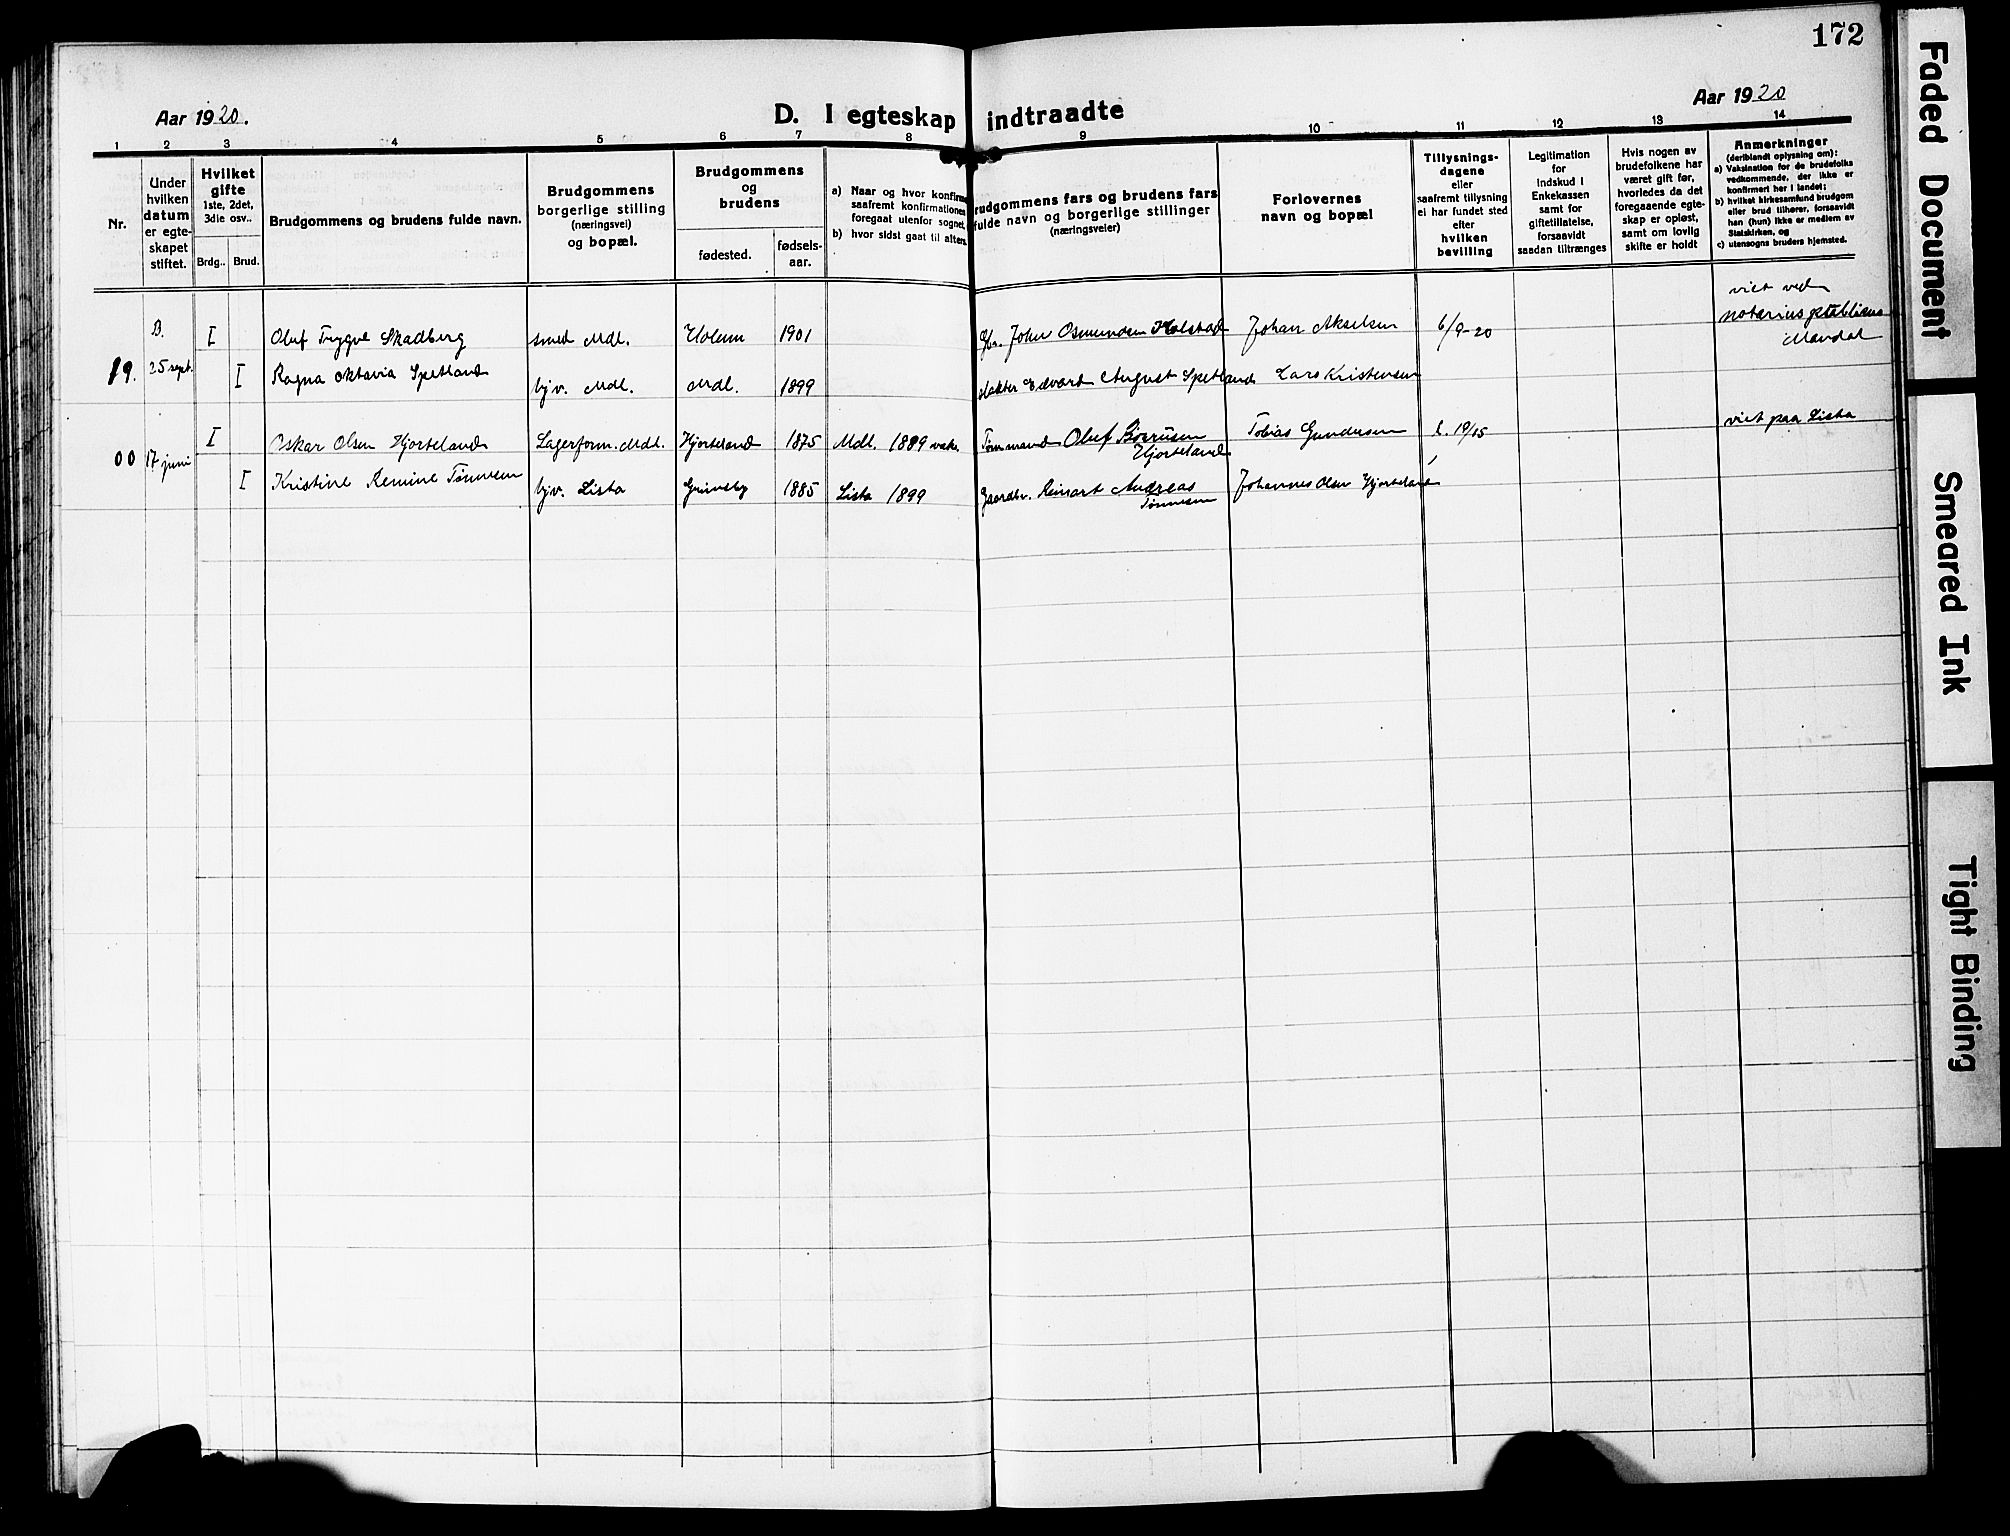 172
Aar 1920.
D. I egteskap indtraadte
Aar 1920
1 2 3 4 5 6 7 8 9 10 11 12 13 14
Nr.
Under
hvilken
datum
er egte-
skapet
stiftet.
Hvilket
gifte
1ste, 2det,
3die osv..
Brdg.. Brud.
Brudgommens og brudens fulde navn.
Brudgommens
borgerlige stilling
(næringsvei)
og bopæl.
Brudgommens
og
brudens
fødested.
fødsels-
aar.
a) Naar og hvor konfirme
saafremt konfirmationen
foregaat utenfor sognet,
b) hvor sidst gaat til alters.
rudgommens fars og brudens fars
fulde navn og borgerlige stillinger
(næringsveier)
Forlovernes
navn og bopæl
Tillysnings-
dagene
eller
saafremt tillysning
ei har fundet sted
efter
hvilken
bevilling
Legitimation
for
Indskud i
Enkekassen
samt for
giftetillatelse,
forsaavidt
saadan tiltrænges
Hvis nogen av
brudefolkene har
været gift før,
hvorledes da det
foregaaende egte-
skap er opløst,
samt om lovlig
skifte er holdt
Anmerkninger
(deriblandt oplysning om):
a) Vaksination for de brudefolks
vedkommende, der ikke er
konfirmert her i landet;
b) hvilket kirkesamfund brudgom
eller brud tilhører, forsaavidt
han (hun) ikke er medlem av
Statskirken, og
c) utensogns bruders hjemsted.
B. I Oluf Trygve Skadberg smed Mdl. Holum 1901 Gbr. John Osmundsen Holstad Johan Akselsen 6/9-20
viet ved
notarius publicus
Mandal
19. 25 sept. I Ragna Oktavia Spetland hjv. Mdl. Mdl. 1899 Edvart August Spetland Lars Kristensen
00 17 juni I Oskar Olsen Hjorteland Lagerform. Mdl. Hjorteland 1875 Mdl. 1889 Tømmand Oluf Børrusen
Hjorteland
Tobias Gundersen 19/15 viet paa Lista
I Kristine Remine Tønnesen hjv. Lista Grimsby 1885 Lista 1899 Gaardbr. Reinart Andreas
Tønnesen
Johannes Olsen Hjorteland
Faded Document
Smeared Ink
Tight Binding